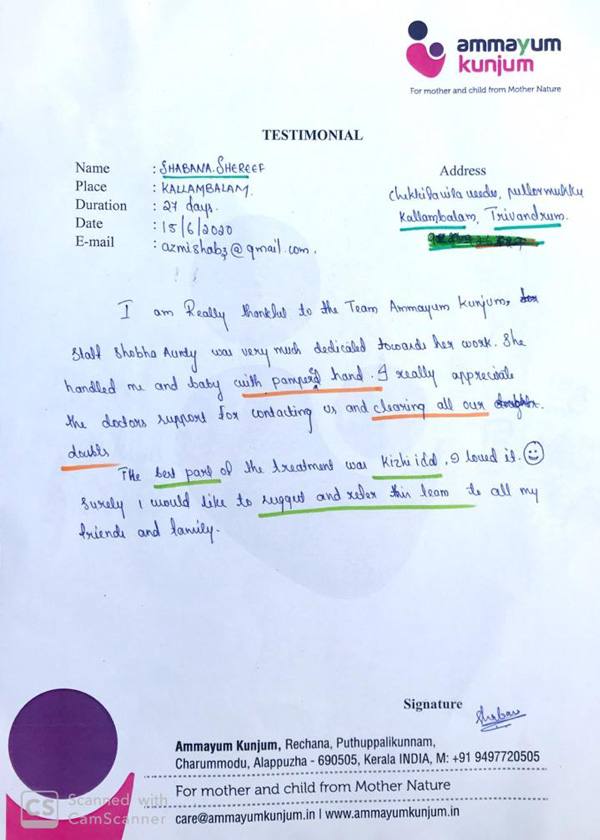 ammayum
kunjum
For mother and child from Mother Nature
TESTIMONIAL
Name : SHABANA. SHEREEF
Place : KALLAMBALAM.
Duration : 27 days.
Date : 15/6/2020
E-mail : azmishab3@gmail.com.
Address
Kallambalam, Trivandrum.
I am Really thankful to the Team Ammayum Kunjum,
Staff Shobha Aunty was very much dedicated towards her work. She
handled me and baby with pampered hand. I really appreciate
the doctors support for contacting us and clearing all our
doubts
The best part of the treatment was Kizhi idd, I loved it.
Surely I would like to suggest and refer this team to all my
friends and family.
Signature
Ammayum Kunjum, Rechana, Puthuppalikunnam,
Charummodu, Alappuzha - 690505, Kerala INDIA, M: +91 9497720505
For mother and child from Mother Nature
care@ammayumkunjum.in | www.ammayumkunjum.in
CS Scanned with
CamScanner